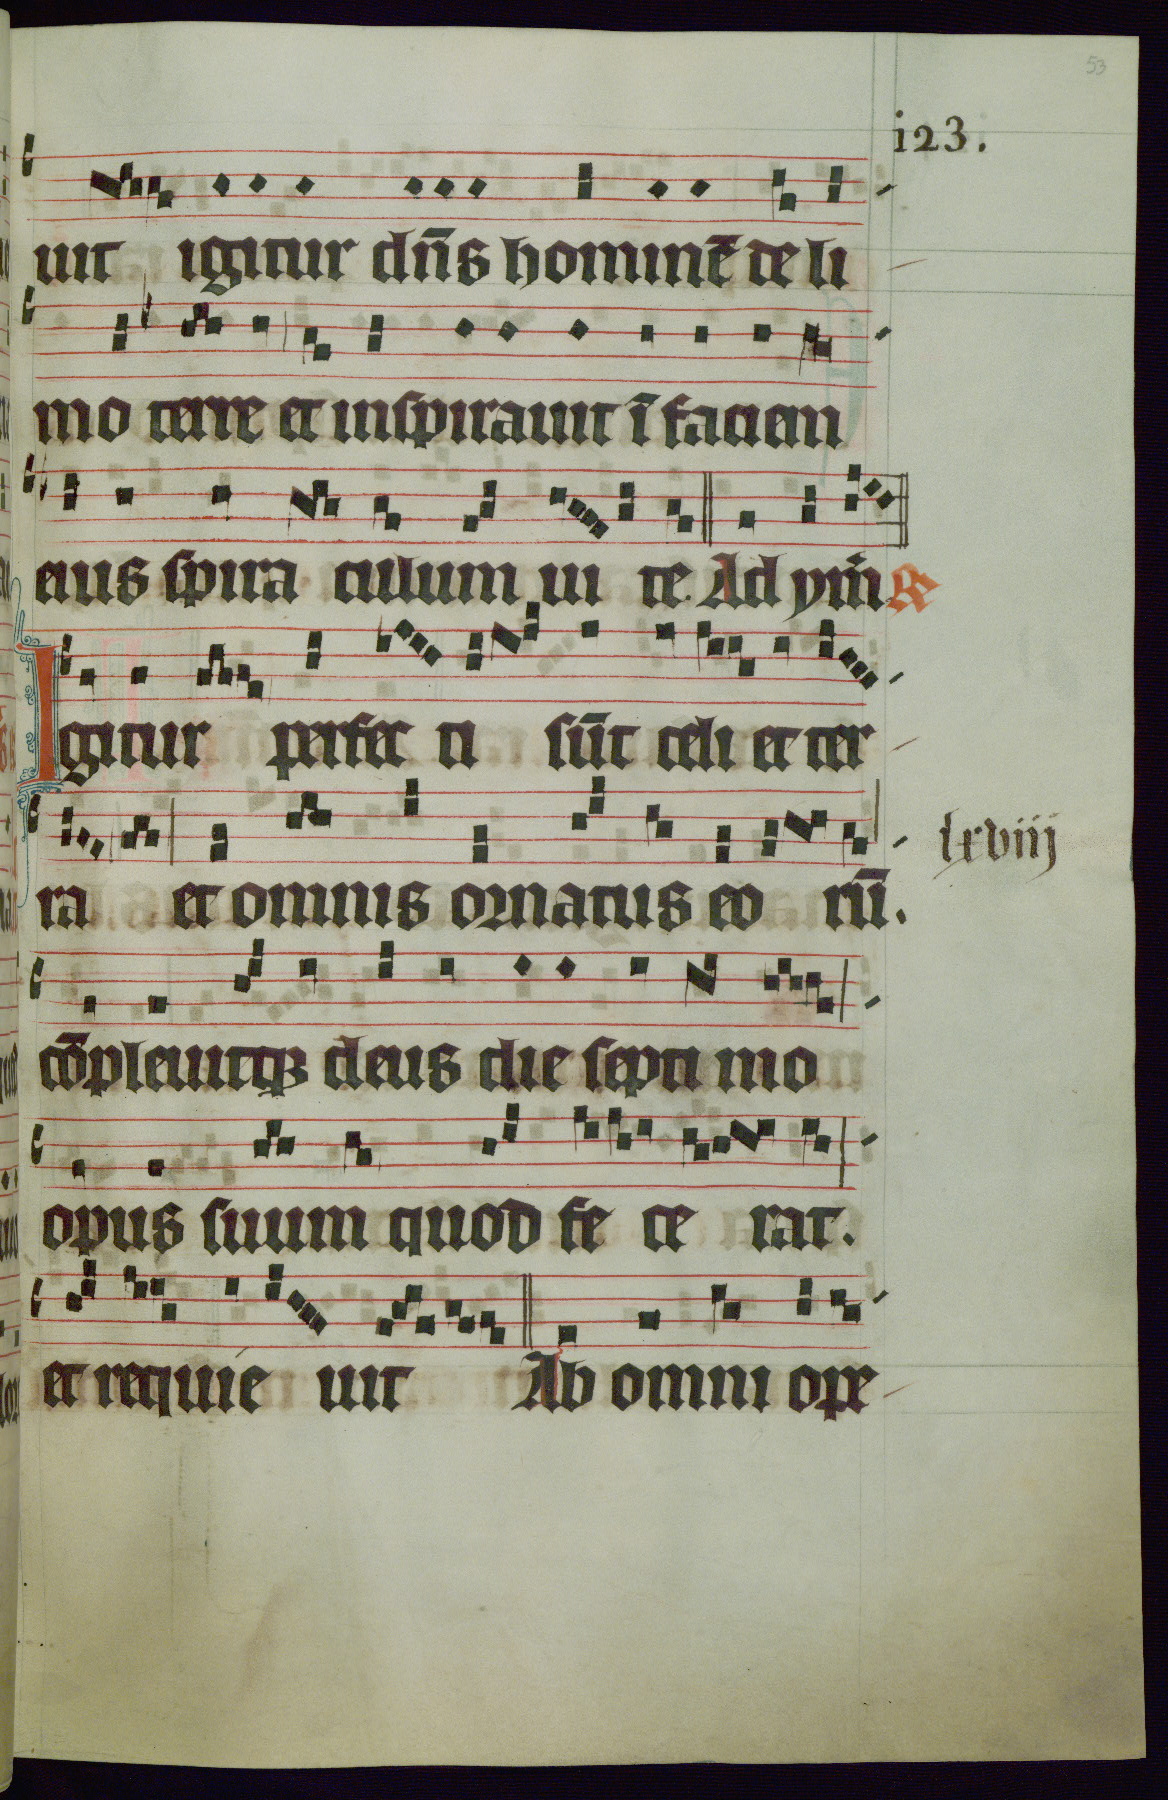 53
i23.
uit igitur dn̄s hominē de li
mo terre et inspirauit ī faciem
eius spira culum ui te. Ad ym̄ ℟
Igitur perfec ti sūt celi et ter
ra et omnis ornatus eo rū.
lxviij
cōpleuitqꝫ deus die septi mo
opus suum quod fe ce rat.
et requie uit Ab omni ope